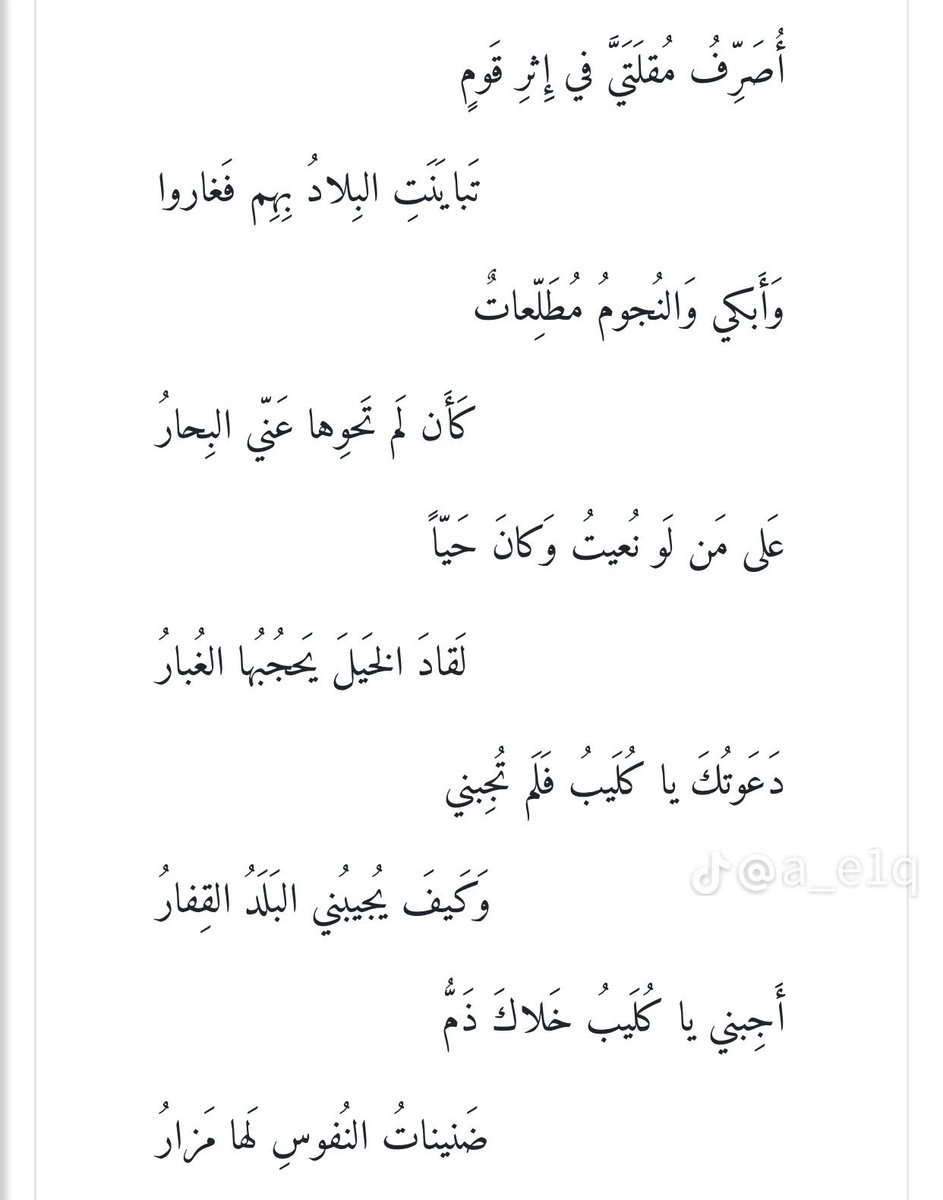 أُصَرِّفُ مُقلَتَيَّ في إِثرِ قَومٍ
تَبايَنَتِ البِلادُ بِهِم فَغاروا
وَأَبكي وَالنُجومُ مُطَلِّعاتٌ
كَأَن لَم تَحوِها عَنّي البِحارُ
عَلى مَن لَو نُعيتُ وَكانَ حَيّاً
لَقادَ الخَيلَ يَحجُبُها الغُبارُ
دَعَوتُكَ يا كُلَيبُ فَلَم تُجِبني
@a_elq
وَكَيفَ يُجيبُني البَلَدُ القِفارُ
أَجِبني يا كُلَيبُ خَلاكَ ذَمُّ
ضَنيناتُ النُفوسِ لَها مَزارُ